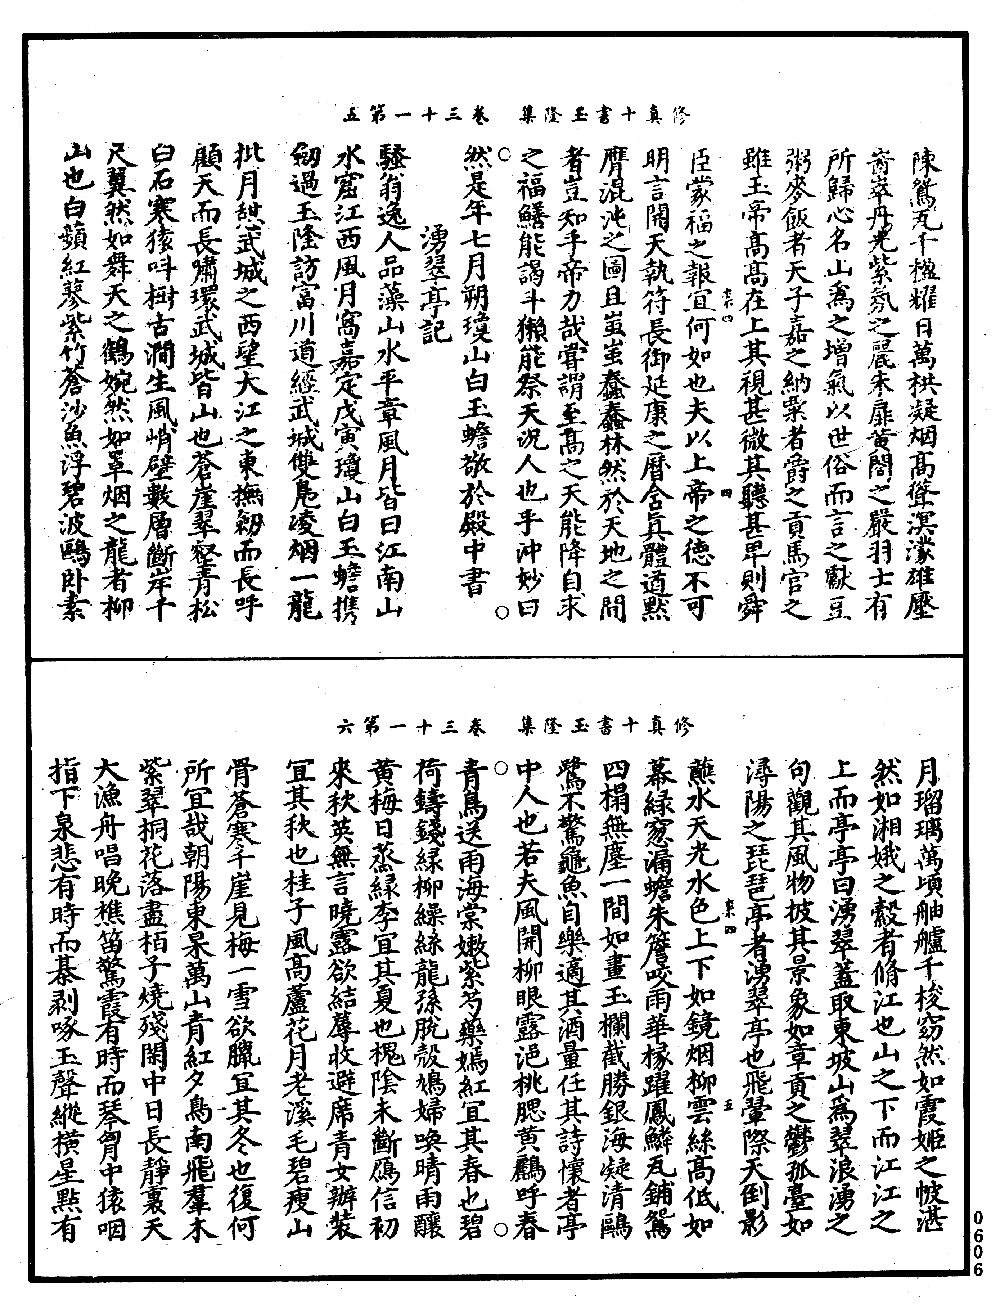 修真十書玉隆集　卷三十一第五
陳鴛瓦千楹耀日萬栱凝烟高聳溟濛雄壓
崙萃丹光紫氛之麗朱扉黃閤之嚴羽士有
所歸心名山爲之增氣以世俗而言之獻豆
粥麥飯者天子嘉之納粟者爵之貢馬官之
雖玉帝高高在上其視甚微其聽甚卑則舜
臣蒙福之報宜何如也夫以上帝之德不可
明言開天執符長御延康之曆含眞體道默
膺混沌之圖且蚩蚩蠢蠢林然於天地之間
者豈知乎帝力哉嘗謂至高之天能降自求
之福鱔能謁斗獺能祭天況人也乎沖妙曰
然是年七月朔瓊山白玉蟾敬於殿中書
湧翠亭記
騷翁逸人品藻山水平章風月皆曰江南山
水窟江西風月窩嘉定戊寅瓊山白玉蟾攜
劒過玉隆訪富川道經武城雙鳧凌烟一龍
批月憇武城之西壁大江之東撫劒而長呼
顧天而長嘯環武城皆山也蒼崖翠壑青松
白石寒猿呌樹古澗生風峭壁數層斷岸千
尺翼然如舞天之鶴婉然如罩烟之龍者柳
山也白蘋紅蓼紫竹蒼沙魚浮碧波鷗臥素
修真十書玉隆集　卷三十一第六
月瑠璃萬頃舳艫千梭窈然如霞姬之帔湛
然如湘娥之縠者脩江也山之下而江江之
上而亭亭曰湧翠蓋取東坡山爲翠浪湧之
句觀其風物披其景象如章貢之鬱孤臺如
潯陽之琵琶亭者湧翠亭也飛翬際天倒影
蘸水天光水色上下如鏡烟柳雲絲高低如
幕綠窓漏蟾朱簷咬雨華榱躍鳳鱗瓦鋪鴛
四榻無塵一間如畫玉欄截勝銀海凝清鷗
鷺不驚龜魚自樂適其酒量任其詩懷者亭
中人也若夫風開柳眼露浥桃腮黃鸝呼春
青鳥送雨海棠嫩紫芍藥嫣紅宜其春也碧
荷鑄錢綠柳繰絲龍孫脫殼鳩婦喚晴雨釀
黃梅日蒸綠李宜其夏也槐陰未斷鴈信初
來秋英無言曉露欲結蓐收避席青女辦裝
宜其秋也桂子風高蘆花月老溪毛碧瘦山
骨蒼寒千崖見梅一雪欲臘宜其冬也復何
所宜哉朝陽東杲萬山青紅夕鳥南飛羣木
紫翠桐花落盡栢子燒殘閑中日長靜裏天
大漁舟唱晚樵笛驚霞有時而琴胷中猿咽
指下泉悲有時而棊剥啄玉聲縱橫星點有
0606